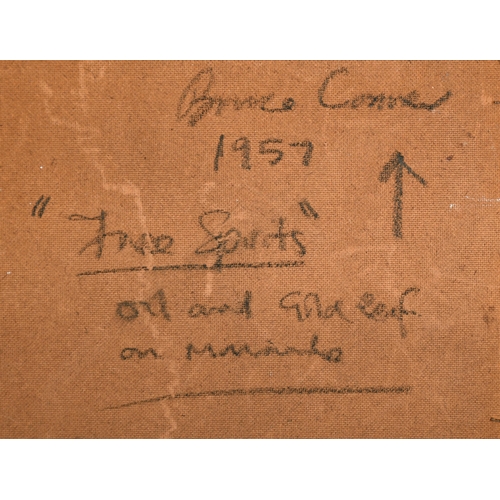 Bruce Conner
1957
"Free Spirits"
oil and Gold leaf
on Masonite